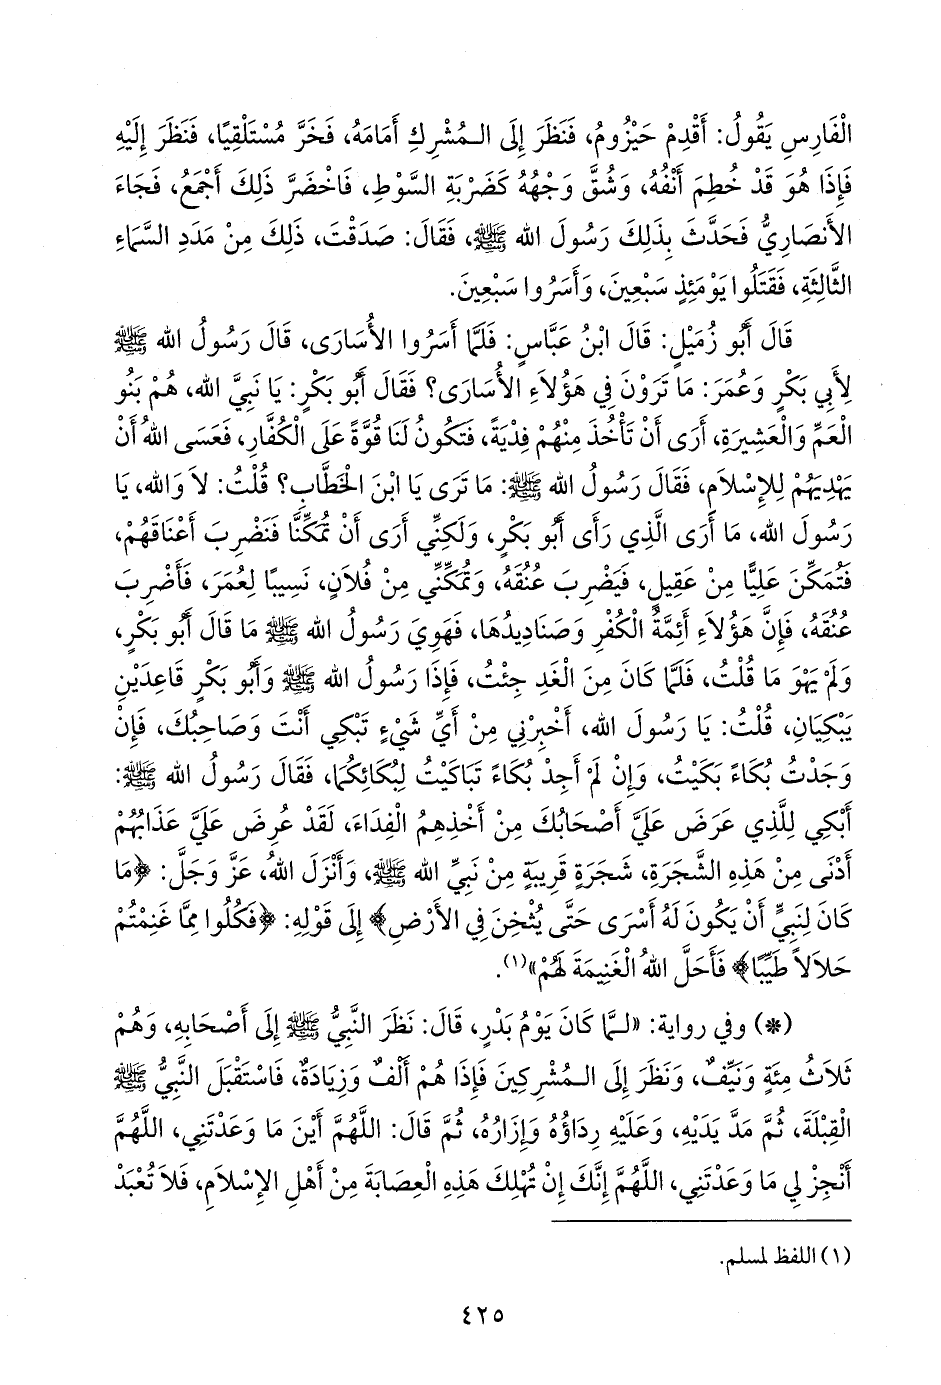 الْفَارِسِ يَقُولُ: أَقْدِمْ حَيْزُومُ، فَنَظَرَ إِلَى الـمُشْرِكِ أَمَامَهُ، فَخَرَّ مُسْتَلْقِيًا، فَنَظَرَ إِلَيْهِ
فَإِذَا هُوَ قَدْ خُطِمَ أَنْفُهُ، وَشُقَّ وَجْهُهُ كَضَرْبَةِ السَّوْطِ، فَاخْضَرَّ ذَلِكَ أَجْمَعُ، فَجَاءَ
الأَنصَارِيُّ فَحَدَّثَ بِذَلِكَ رَسُولَ الله ﷺ، فَقَالَ: صَدَقْتَ، ذَلِكَ مِنْ مَدَدِ السَّمَاءِ
الثَّالِثَةِ، فَقَتَلُوا يَوْمَئِذٍ سَبْعِينَ، وَأَسَرُوا سَبْعِينَ.
قَالَ أَبُو زُمَيْلٍ: قَالَ ابْنُ عَبَّاسٍ: فَلَمَّا أَسَرُوا الأُسَارَى، قَالَ رَسُولُ الله ﷺ
لِأَبِي بَكْرٍ وَعُمَرَ: مَا تَرَوْنَ فِي هَؤُلَاءِ الأُسَارَى؟ فَقَالَ أَبُو بَكْرٍ: يَا نَبِيَّ الله، هُمْ بَنُو
الْعَمِّ وَالْعَشِيرَةِ، أَرَى أَنْ تَأْخُذَ مِنْهُمْ فِدْيَةً، فَتَكُونُ لَنَا قُوَّةً عَلَى الْكُفَّارِ، فَعَسَى اللهُ أَنْ
يَهْدِيَهُمْ لِلإِسْلَامِ، فَقَالَ رَسُولُ الله ﷺ: مَا تَرَى يَا ابْنَ الْخَطَّابِ؟ قُلْتُ: لاَ وَالله، يَا
رَسُولَ الله، مَا أَرَى الَّذِي رَأَى أَبُو بَكْرٍ، وَلَكِنِّي أَرَى أَنْ تُمَكِّنَّا فَنَضْرِبَ أَعْنَاقَهُمْ،
فَتُمَكِّنَ عَلِيًّا مِنْ عَقِيلٍ، فَيَضْرِبَ عُنُقَهُ، وَتُمَكِّنِّي مِنْ فُلاَنٍ، نَسِيبًا لِعُمَرَ، فَأَضْرِبَ
عُنُقَهُ، فَإِنَّ هَؤُلَاءِ أَئِمَّةُ الْكُفْرِ وَصَنَادِيدُهَا، فَهَوِيَ رَسُولُ الله ﷺ مَا قَالَ أَبُو بَكْرٍ،
وَلَمْ يَهْوَ مَا قُلْتُ، فَلَمَّا كَانَ مِنَ الْغَدِ جِئْتُ، فَإِذَا رَسُولُ الله ﷺ وَأَبُو بَكْرٍ قَاعِدَيْنِ
يَبْكِيَانِ، قُلْتُ: يَا رَسُولَ الله، أَخْبِرْنِي مِنْ أَيِّ شَيْءٍ تَبْكِي أَنْتَ وَصَاحِبُكَ، فَإِنْ
وَجَدْتُ بُكَاءً بَكَيْتُ، وَإِنْ لَمْ أَجِدْ بُكَاءً تَبَاكَيْتُ لِبُكَائِكُمَا، فَقَالَ رَسُولُ الله ﷺ:
أَبْكِي لِلَّذِي عَرَضَ عَلَيَّ أَصْحَابُكَ مِنْ أَخْذِهِمُ الْفِدَاءَ، لَقَدْ عُرِضَ عَلَيَّ عَذَابُهُمْ
أَدْنَى مِنْ هَذِهِ الشَّجَرَةِ، شَجَرَةٍ قَرِيبَةٍ مِنْ نَبِيِّ الله ﷺ، وَأَنْزَلَ اللهُ، عَزَّ وَجَلَّ: ﴿مَا
كَانَ لِنَبِيٍّ أَنْ يَكُونَ لَهُ أَسْرَى حَتَّى يُثْخِنَ فِي الأَرْضِ﴾ إِلَى قَوْلِهِ: ﴿فَكُلُوا مِمَّا غَنِمْتُمْ
حَلاَلاً طَيِّبًا﴾ فَأَحَلَّ اللهُ الْغَنِيمَةَ لَهُمْ»(١).
(*) وفي رواية: «لـمَّا كَانَ يَوْمُ بَدْرٍ، قَالَ: نَظَرَ النَّبِيُّ ﷺ إِلَى أَصْحَابِهِ، وَهُمْ
ثَلاَثُ مِئَةٍ وَنَيِّفٌ، وَنَظَرَ إِلَى الـمُشْرِكِينَ فَإِذَا هُمْ أَلْفٌ وَزِيَادَةٌ، فَاسْتَقْبَلَ النَّبِيُّ ﷺ
الْقِبْلَةَ، ثُمَّ مَدَّ يَدَيْهِ، وَعَلَيْهِ رِدَاؤُهُ وَإِزَارُهُ، ثُمَّ قَالَ: اللَّهُمَّ أَيْنَ مَا وَعَدْتَنِي، اللَّهُمَّ
أَنْجِزْ لِي مَا وَعَدْتَنِي، اللَّهُمَّ إِنَّكَ إِنْ تُهْلِكَ هَذِهِ الْعِصَابَةَ مِنْ أَهْلِ الإِسْلاَمِ، فَلاَ تُعْبَدْ
(١) اللفظ لمسلم.
٤٢٥